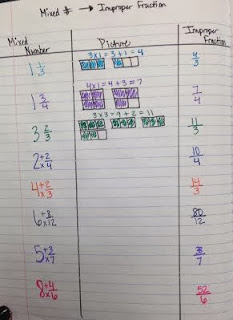 Mixed # → Improper Fraction
Mixed Number Picture Improper Fraction
1 1/3 3x1=3+1=4 4/3
1 3/4 4x1=4+3=7 7/4
3 2/3 3x3=9+2=11 11/3
2 +2/x4 10/4
4 +2/x3 14/3
6 +8/x12 80/12
5 +3/x7 38/7
8 +4/x6 52/6